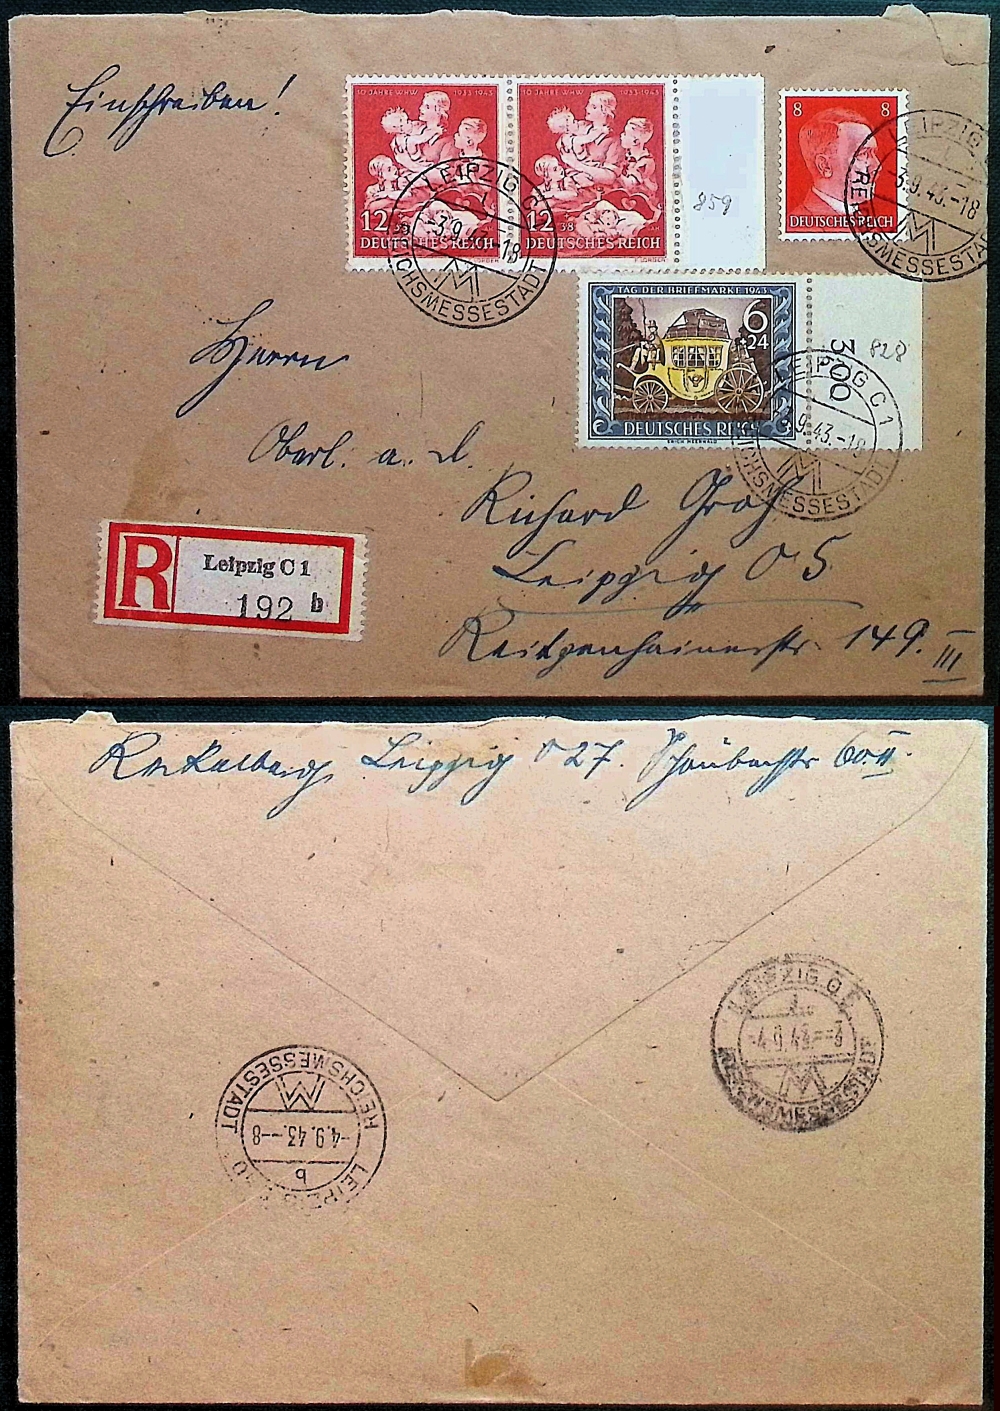 Einschreiben!
10 JAHRE WHW 1933-1943
12+38
DEUTSCHES REICH
10 JAHRE WHW 1933-1943
12+38
DEUTSCHES REICH
859
8 8
DEUTSCHES REICH
LEIPZIG C1
-3.9.43.-18
REICHSMESSESTADT
LEIPZIG
-3.9.43.-18
REICHSMESSESTADT
TAG DER BRIEFMARKE 1943
6+24
DEUTSCHES REICH
ERICH MEERWALD
3,00
828
LEIPZIG C1
3.9.43.-18
REICHSMESSESTADT
Herrn
Oberl. a. d.
Richard Graf
Leipzig O 5
Reitzenhainerstr. 149. III
R Leipzig C 1
192 b
Leipzig O 27. 60 II.
LEIPZIG O
-4.9.43.--8
REICHSMESSESTADT
LEIPZIG
b
-4.9.43.--8
REICHSMESSESTADT